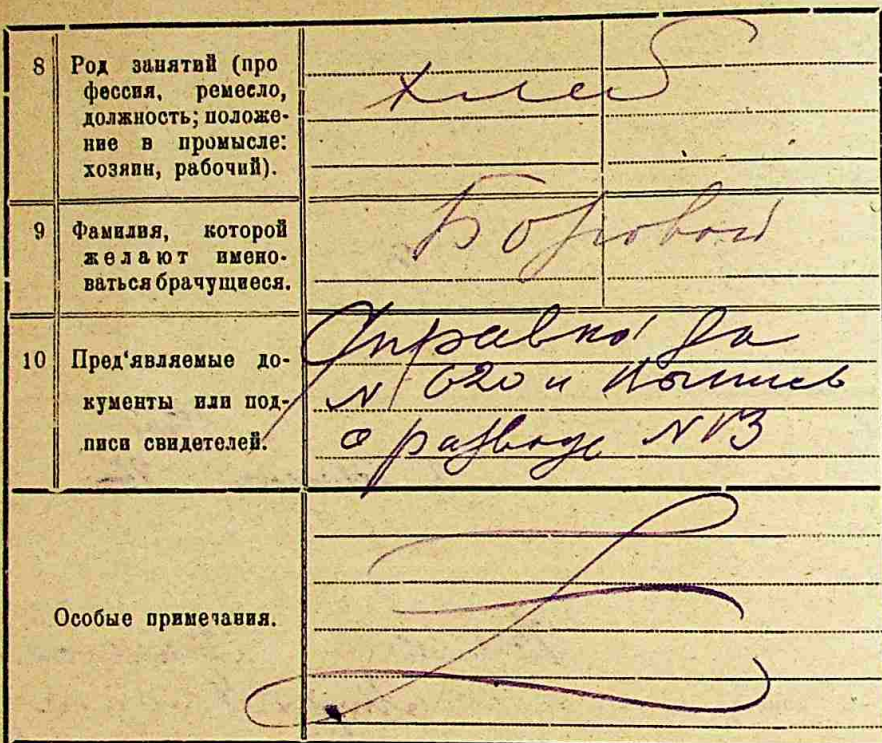 8 Род занятий (про
фессия, ремесло,
должность; положе-
ние в промысле:
хозяин, рабочий).
хлеб
9 Фамилия, которой
желают имено-
ваться брачущиеся.
Боровой
10 Пред'являемые до-
кументы или под-
писи свидетелей.
Справка да
N 620 и
о разводе N 13
Особые примечания.